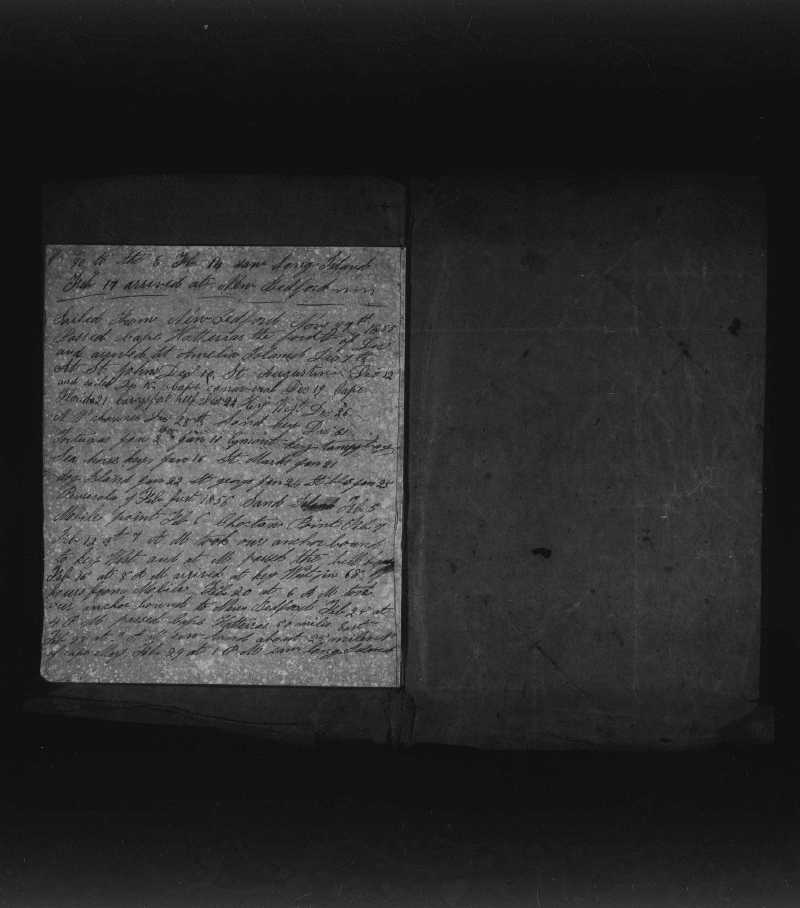 to the E Feb 14 saw Long Island
Feb 17 arrived at New Bedford
Sailed from New Bedford Nov 29th 1855
Passed Cape Hatteras the ford of Dec
and arrived at Amelia Island Dec
At St Johns Dec 10 St Augustine Dec 12
and sailed Dec cape canaveral Dec 19 Cape
Florida 21 Carysfort reef Dec 22 Key West Dec 26
N W channel Dec 28th Sand key Dec 31
Tortugas Jan 2 Jan 11 Egmont key tampy bay
Sea horse key Jan 16 St Marks Jan 21
Dog Island Jan 22 st george Jan 24 Jan 25
Pensicola Feb first 1856 Sand Island Feb 5
Mobile point Feb 6 Choctaw Point Feb 7
Feb 13 at 7 A M took our anchor bound
to key West and at M passed the bell
Feb 16 at 8 A M arrived at key West in 68
hours from Mobile Feb 20 at 6 A M took
our anchor bound to New Bedford Feb 25 at
P M passed Cape Hatteras 50 miles East
Feb 28 at A M saw land about 25 miles
of cape May Feb 29 at 1 P M saw long Island